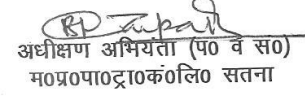 अधीक्षण अभियंता (प० व स०)
म०प्र०पा०ट्रा०कं०लि० सतना